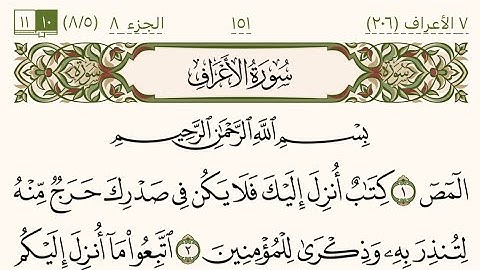 ٧ الأعراف (٢٠٦) ١٥١ الجزء ٨ (٨/٥) ١٠ ١١
سُورَةُ الأَعْرَافِ
بِسْمِ اللَّهِ الرَّحْمَٰنِ الرَّحِيمِ
الٓمٓصٓ ١ كِتَٰبٌ أُنزِلَ إِلَيْكَ فَلَا يَكُن فِى صَدْرِكَ حَرَجٌ مِّنْهُ
لِتُنذِرَ بِهِۦ وَذِكْرَىٰ لِلْمُؤْمِنِينَ ٢ ٱتَّبِعُوا۟ مَآ أُنزِلَ إِلَيْكُم